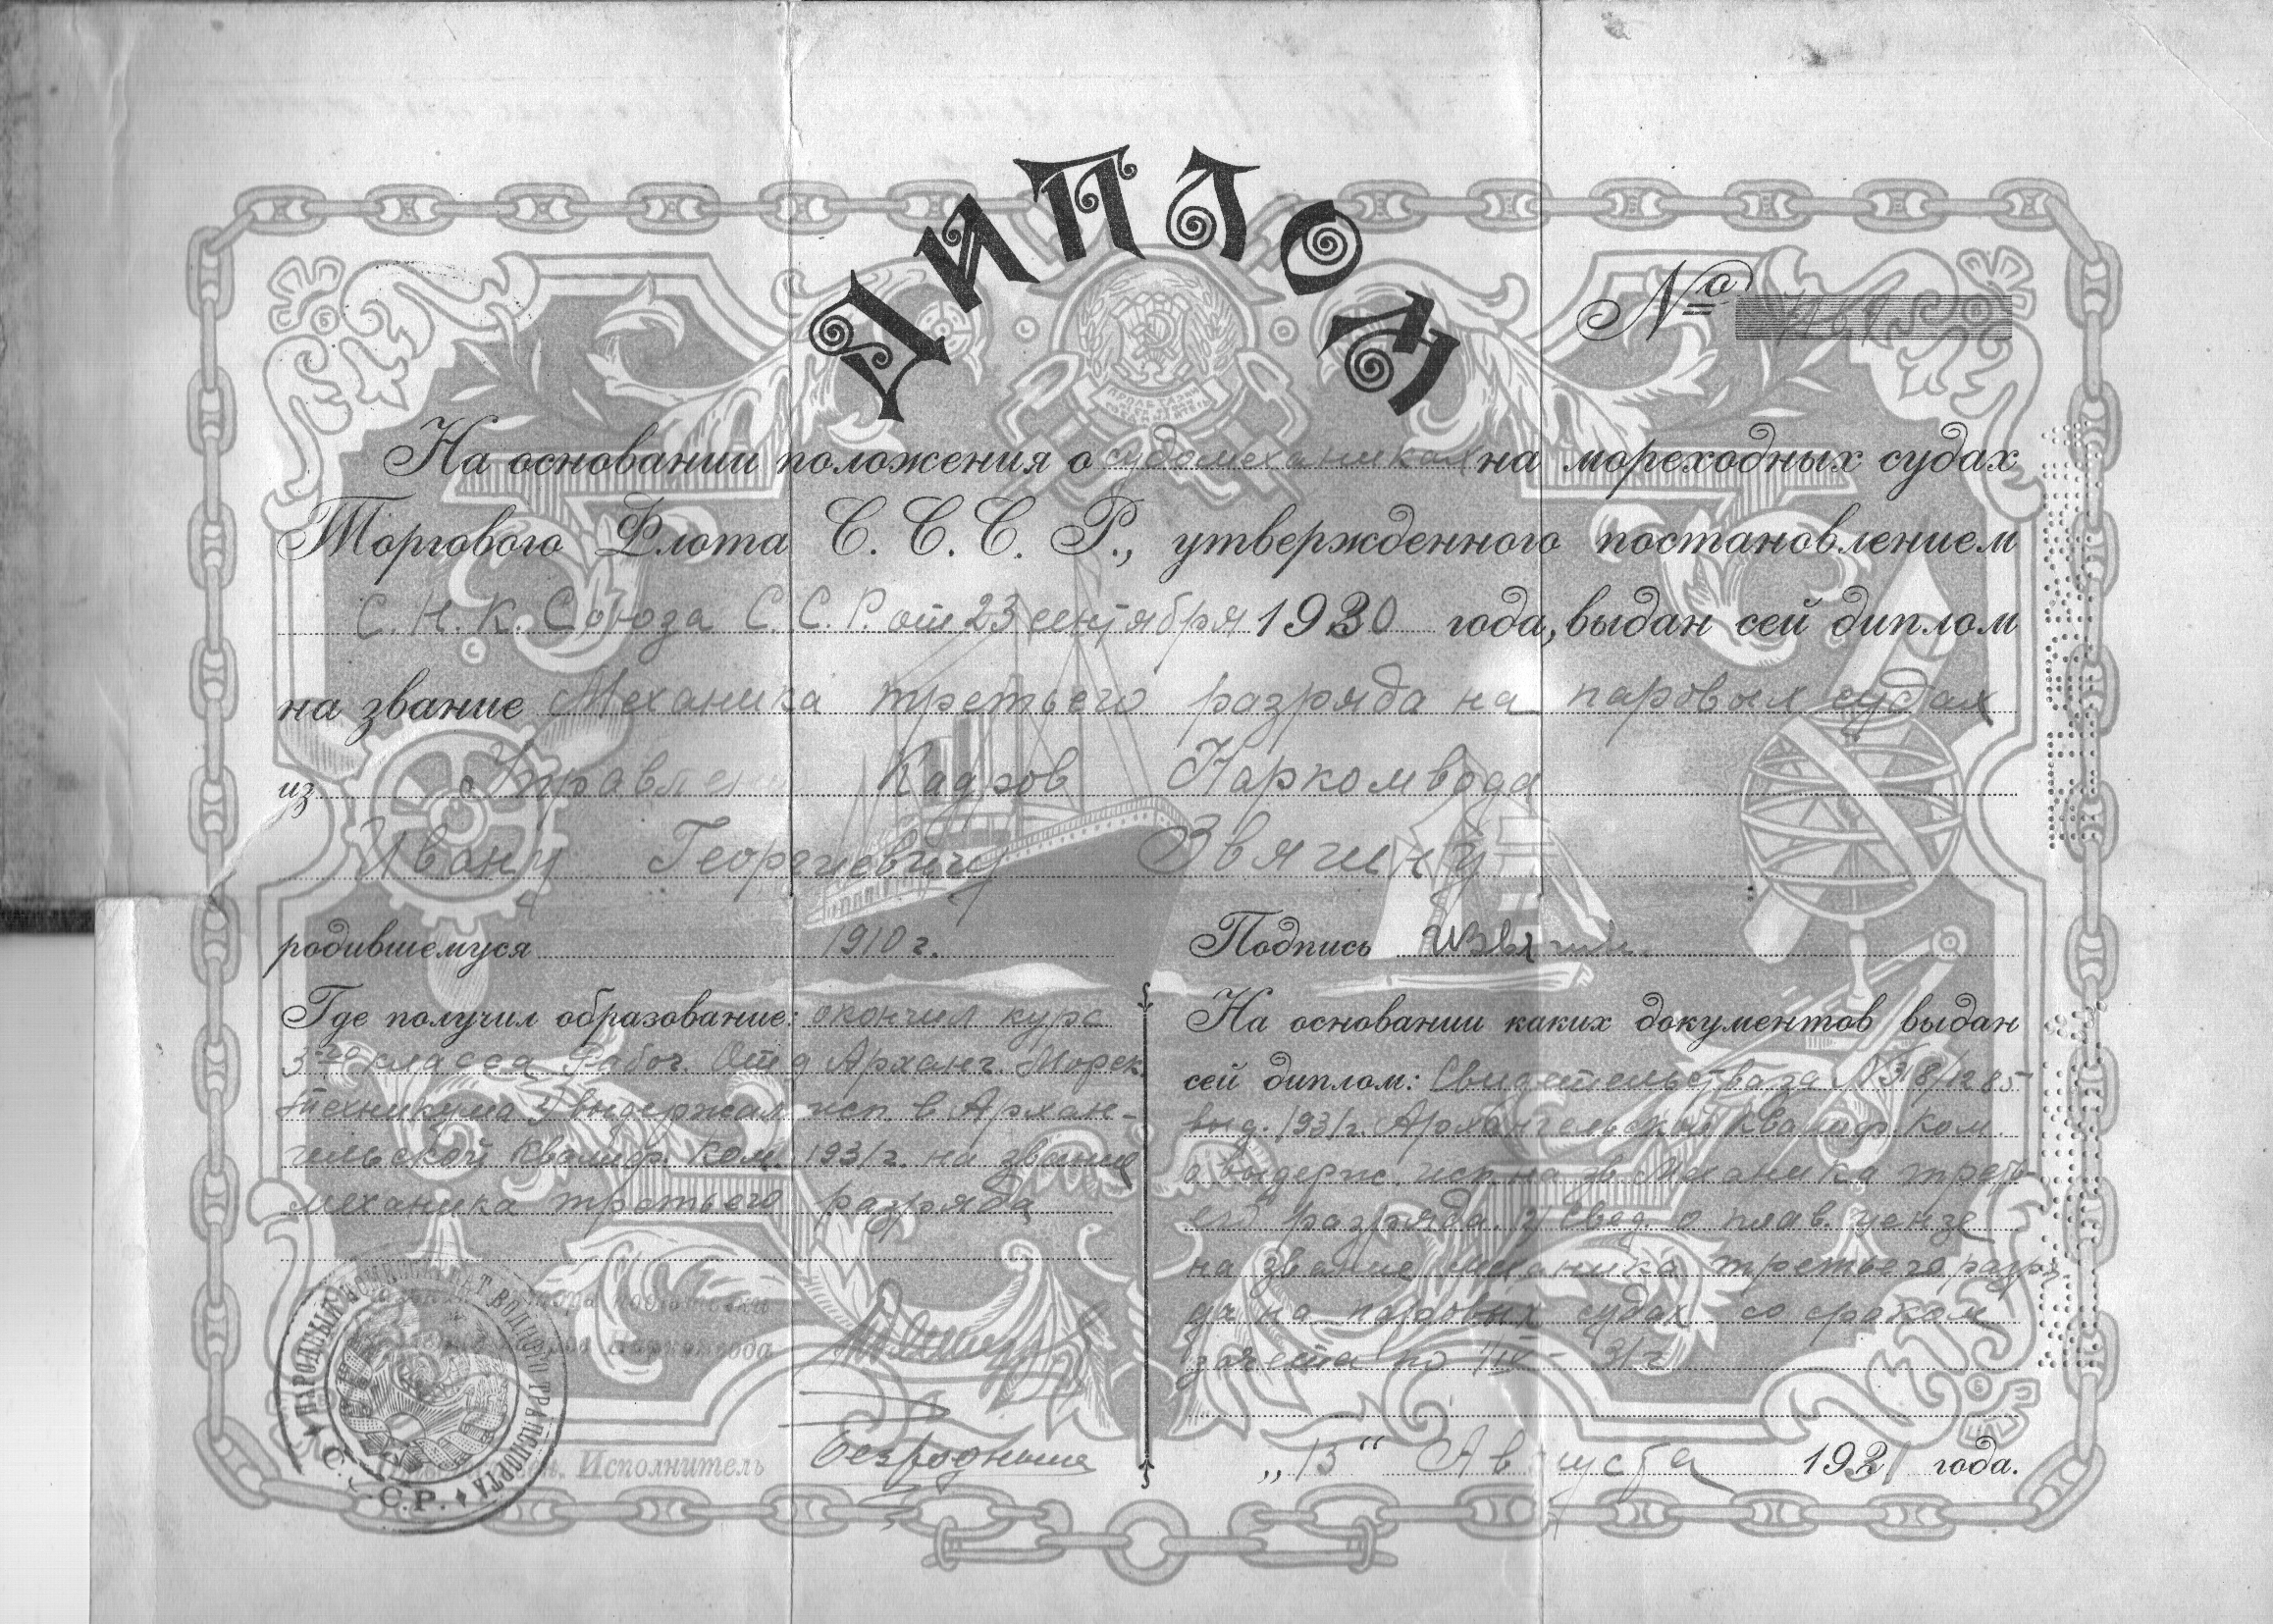 ДИПЛОМ
№
На основании положения о судомеханиках на мореходных судах
Торгового Флота С. С. С. Р., утвержденного постановлением
С. Н. К. Союза С. С. Р. от 23 сентября 1930 года, выдан сей диплом
на звание Механика третьего разряда на паровых судах
из Управлен Кадров Наркомвода
Ивану Георгиевичу Звягину
родившемуся 1910 г.
Подпись
Где получил образование: окончил курс
3-го класса Рабоч. Отд Арханг. Морех.
техникума и выдержал исп. в Архан-
гельской Квалиф. Ком. 1931 г. на звание
механика третьего разряда
На основании каких документов выдан
сей диплом: Свидетельства за №
выд. 1931 г. Архангельской Квалиф. Ком.
о выдерж. исп. на зв. Механика треть-
его разряда и свед. о плав. цензе
на звание механика третьего разря
да на паровых судах со сроком
зачета по
НАРОДНЫЙ КОМИССАРИАТ ВОДНОГО ТРАНСПОРТА
С.С.С.Р.
подготовки
Наркомвода
Исполнитель
„13“ Августа 1931 года.